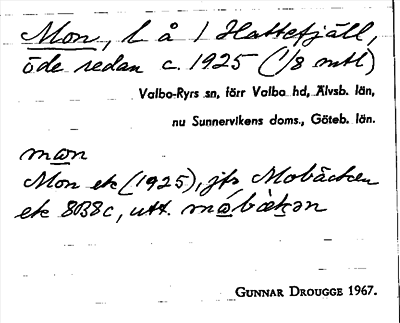 Mon, l å 1 Hattefjäll,
öde sedan c. 1925 (1/8 mtl)
Valbo-Ryrs sn, förr Valbo hd, Älvsb. län,
nu Sunnervikens doms., Göteb. län.
mɷn
Mon ek (1925), jfr Mobäcken
ek 8B8c, utt.
GUNNAR DROUGGE 1967.